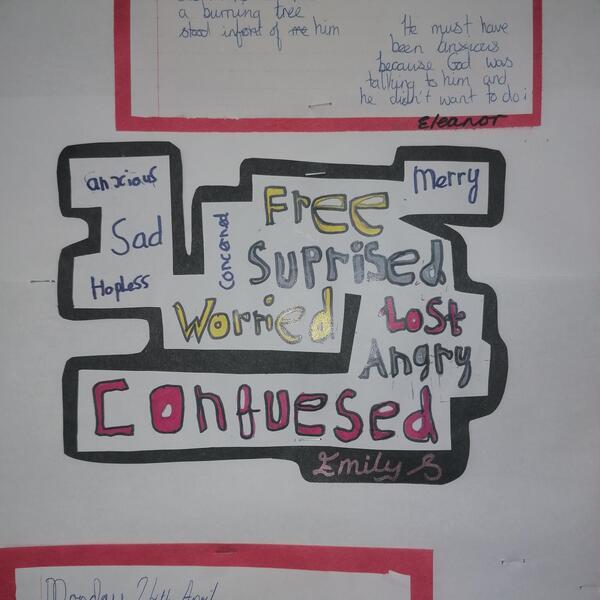 a burning tree
stood infront of me him
He must have
been anxious
because God was
talking to him and
he didn't want to do i
Eleanor
anxious
Sad
Hopless
Concerned
Free
Merry
Suprised
Worried
Lost
Angry
Confuesed
Emily S
Monday 24th April